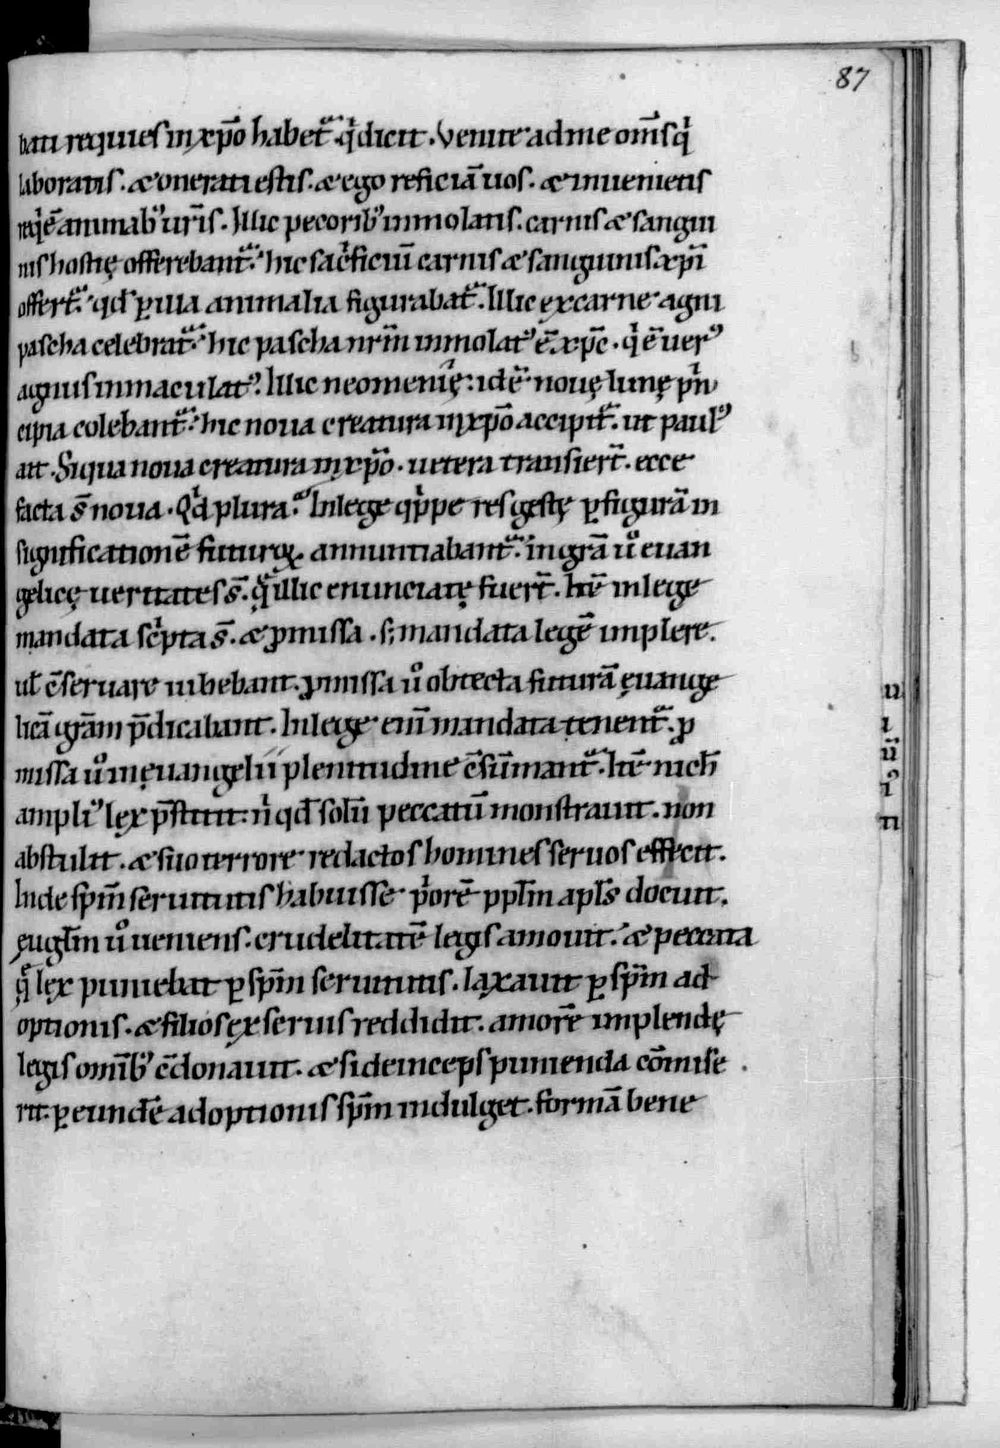 87
bati requies in xp̄o habet᷑. q̇ dicit. Venite ad me om̄s q̇
laboratis. & onerati estis. & ego reficiā uos. & inuenietis
reqͥē animabꝰ ur̄is. Illic pecoribꝰ inmolatis. carnis & sangui
nis hostię offerebant᷑. hic sacͥficiū carnis & sanguinis xp̄i
offert᷑. qd̄ ꝑ illa animalia figurabat᷑. Illic ex carne agni
pascha celebrat᷑. hic pascha nr̄m inmolatꝰ ē xp̄c. qͥ ē uerꝰ
agnus inmaculatꝰ. Illic neomenię. idē nouę lunę pͥn
cipia colebant᷑. hic noua creatura in xp̄o accipit᷑. ut paulꝰ
ait. Siqua noua creatura in xp̄o. uetera transier̄t. ecce
facta s̄ noua. Qͥd plura. In lege qͥppe res gestę ꝑ figurā in
significationē futuroꝝ annuntiabant᷑. in gr̄a uͦ euan
gelicę ueritates s̄. quͣ illic enunciatę fuer̄t. Itē in lege
mandata scͥpta s̄. & ꝓmissa. s; mandata legē implere.
ul̄ c̄seruare iubebant. ꝓmissa uͦ obtecta futurā ęuange
licā gr̄am p̄dicabant. In lege eni̅ mandata tenent᷑. ꝓ
missa uͦ in ęuangelii plenitudine c̄sūmant᷑. Itē nich̄
ampliꝰ lex p̄stitit. nͥ qd̄ solū peccatū monstrauit. non
abstulit. & suo terrore redactos homines seruos effecit.
Inde sp̄m seruitutis habuisse pͥorē ppl̄m apl̄s docuit.
ęugl̄m uͦ ueniens. crudelitatē legis amouit. & peccata
quͣ lex puniebat ꝑ sp̄m seruitutis. laxauit ꝑ sp̄m ad
optionis. & filios ex seruis reddidit. amorē implendę
legis om̄ibꝰ c̄donauit. & si deinceps punienda cōmise
rit. ꝑ eundē adoptionis sp̄m indulget. formā bene